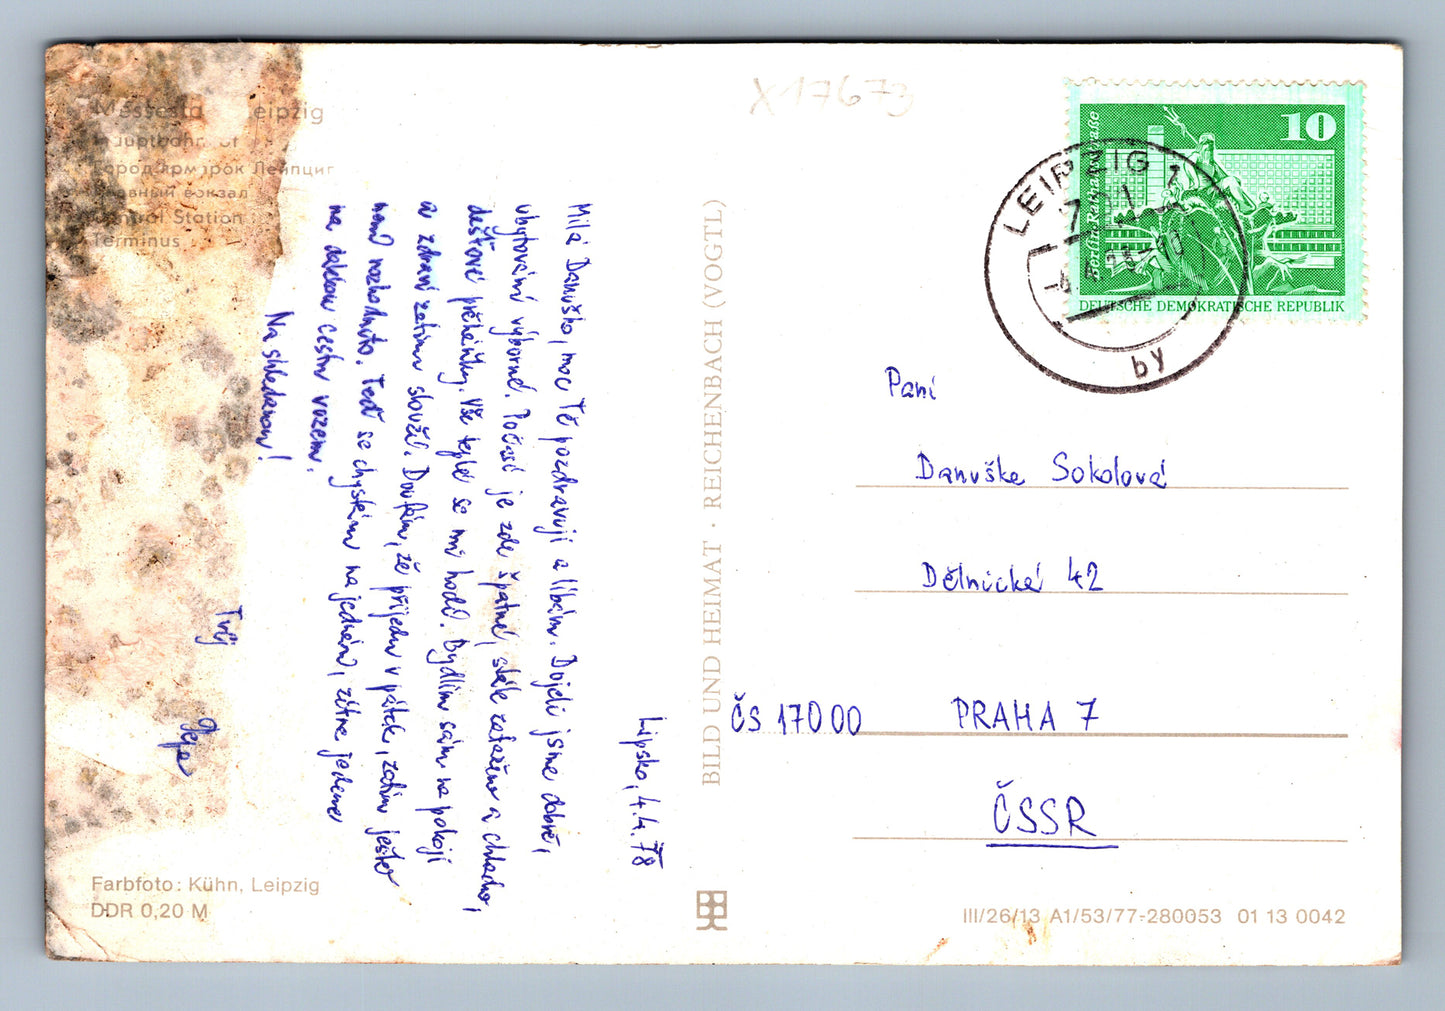 X17673
Messesta eipzig
Hauptbahn of
Город ярмарок Лейпциг
вный вокзал
Central Station
Terminus
Lipsko, 4.4.78
Milá Danuško, moc Tě pozdravuji a líbám. Dojeli jsme dobře,
ubytování výborné. Počasí je zde špatné, stále zataženo a chladno,
dešťové přeháňky. Vše teplé se mi hodí. Bydlím sám na pokoji
a zdraví zatím slouží. Doufám, že přijedu v pátek, zatím ještě
není rozhodnuto. Teď se chystám na jednání, zítra jedeme
na dalekou cestu vozem.
Na shledanou!
Tvůj
BILD UND HEIMAT · REICHENBACH (VOGTL)
10
Berlin Rathausstraße
DEUTSCHE DEMOKRATISCHE REPUBLIK
LEIPZIG 1
by
Paní
Danuška Sokolová
Dělnická 42
ČS 170 00 PRAHA 7
ČSSR
Farbfoto: Kühn, Leipzig
DDR 0,20 M
III/26/13 A1/53/77-280053 01 13 0042